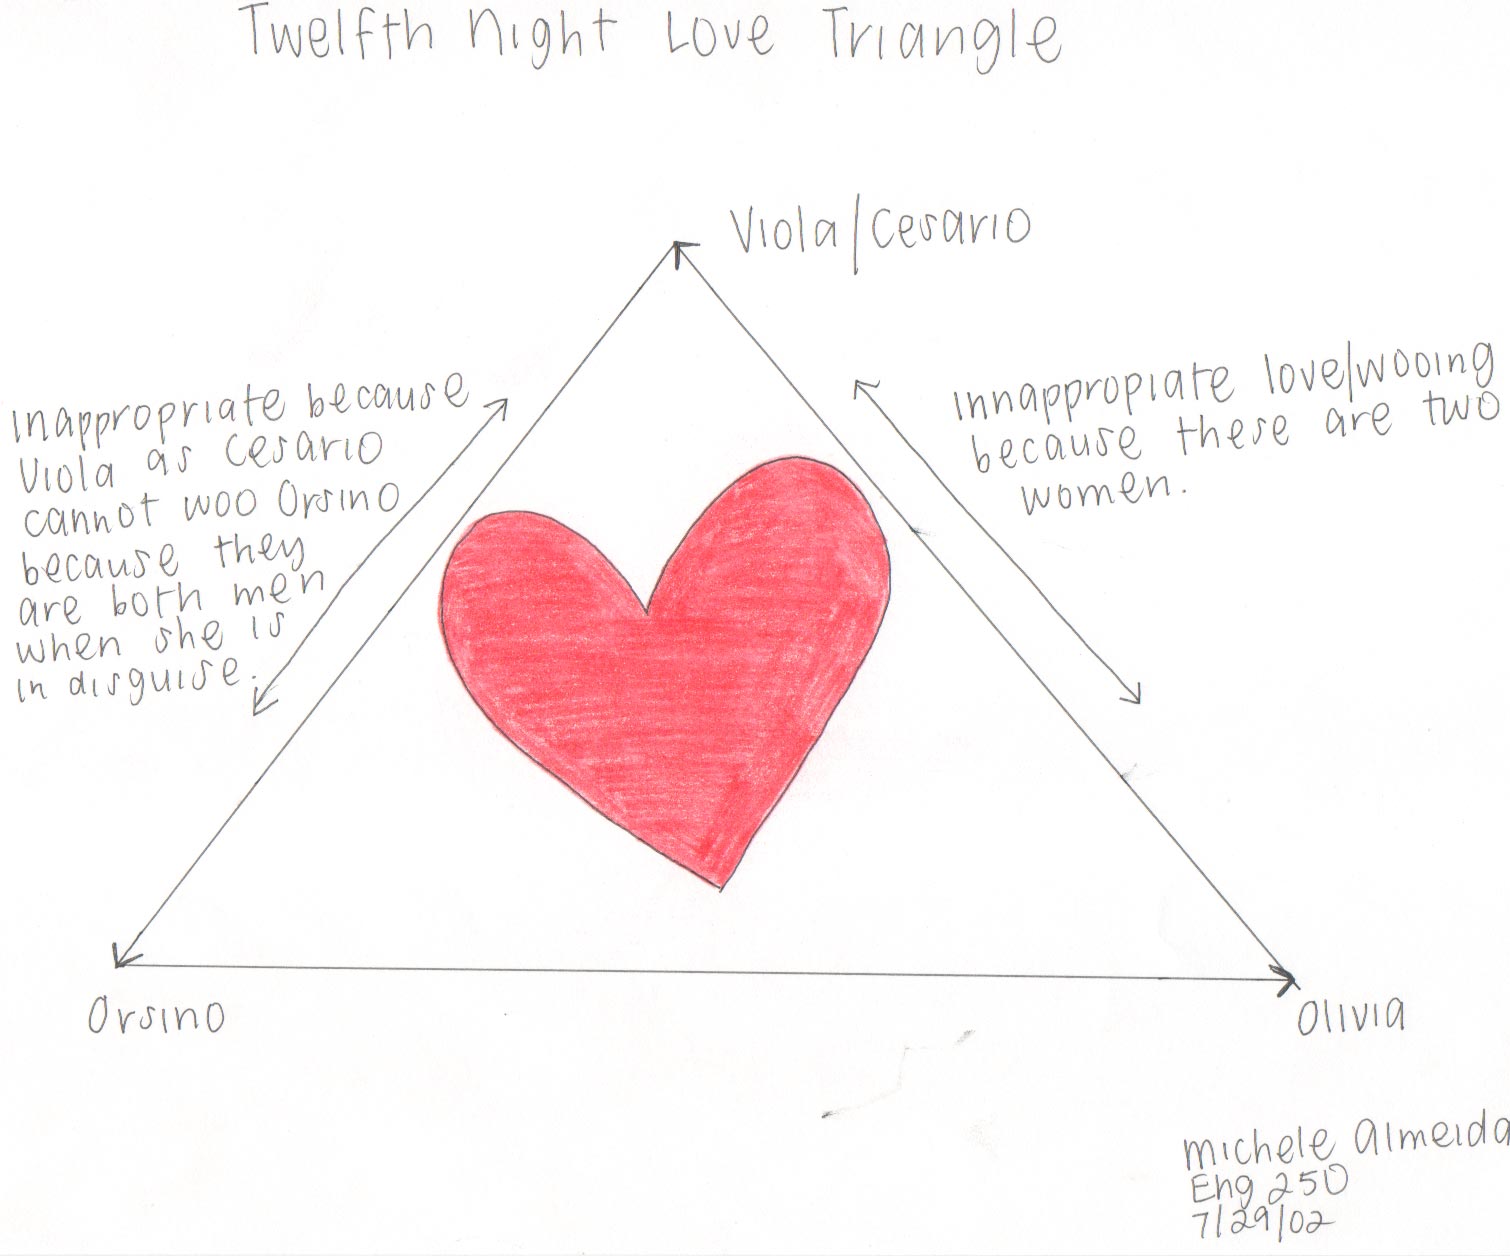 Twelfth Night Love Triangle
Viola/Cesario
Inappropriate because
Viola as Cesario
cannot woo Orsino
because they
are both men
when she is
in disguise.
Innappropiate love/wooing
because these are two
women.
Orsino
Olivia
Michele Almeida
Eng 250
7/29/02